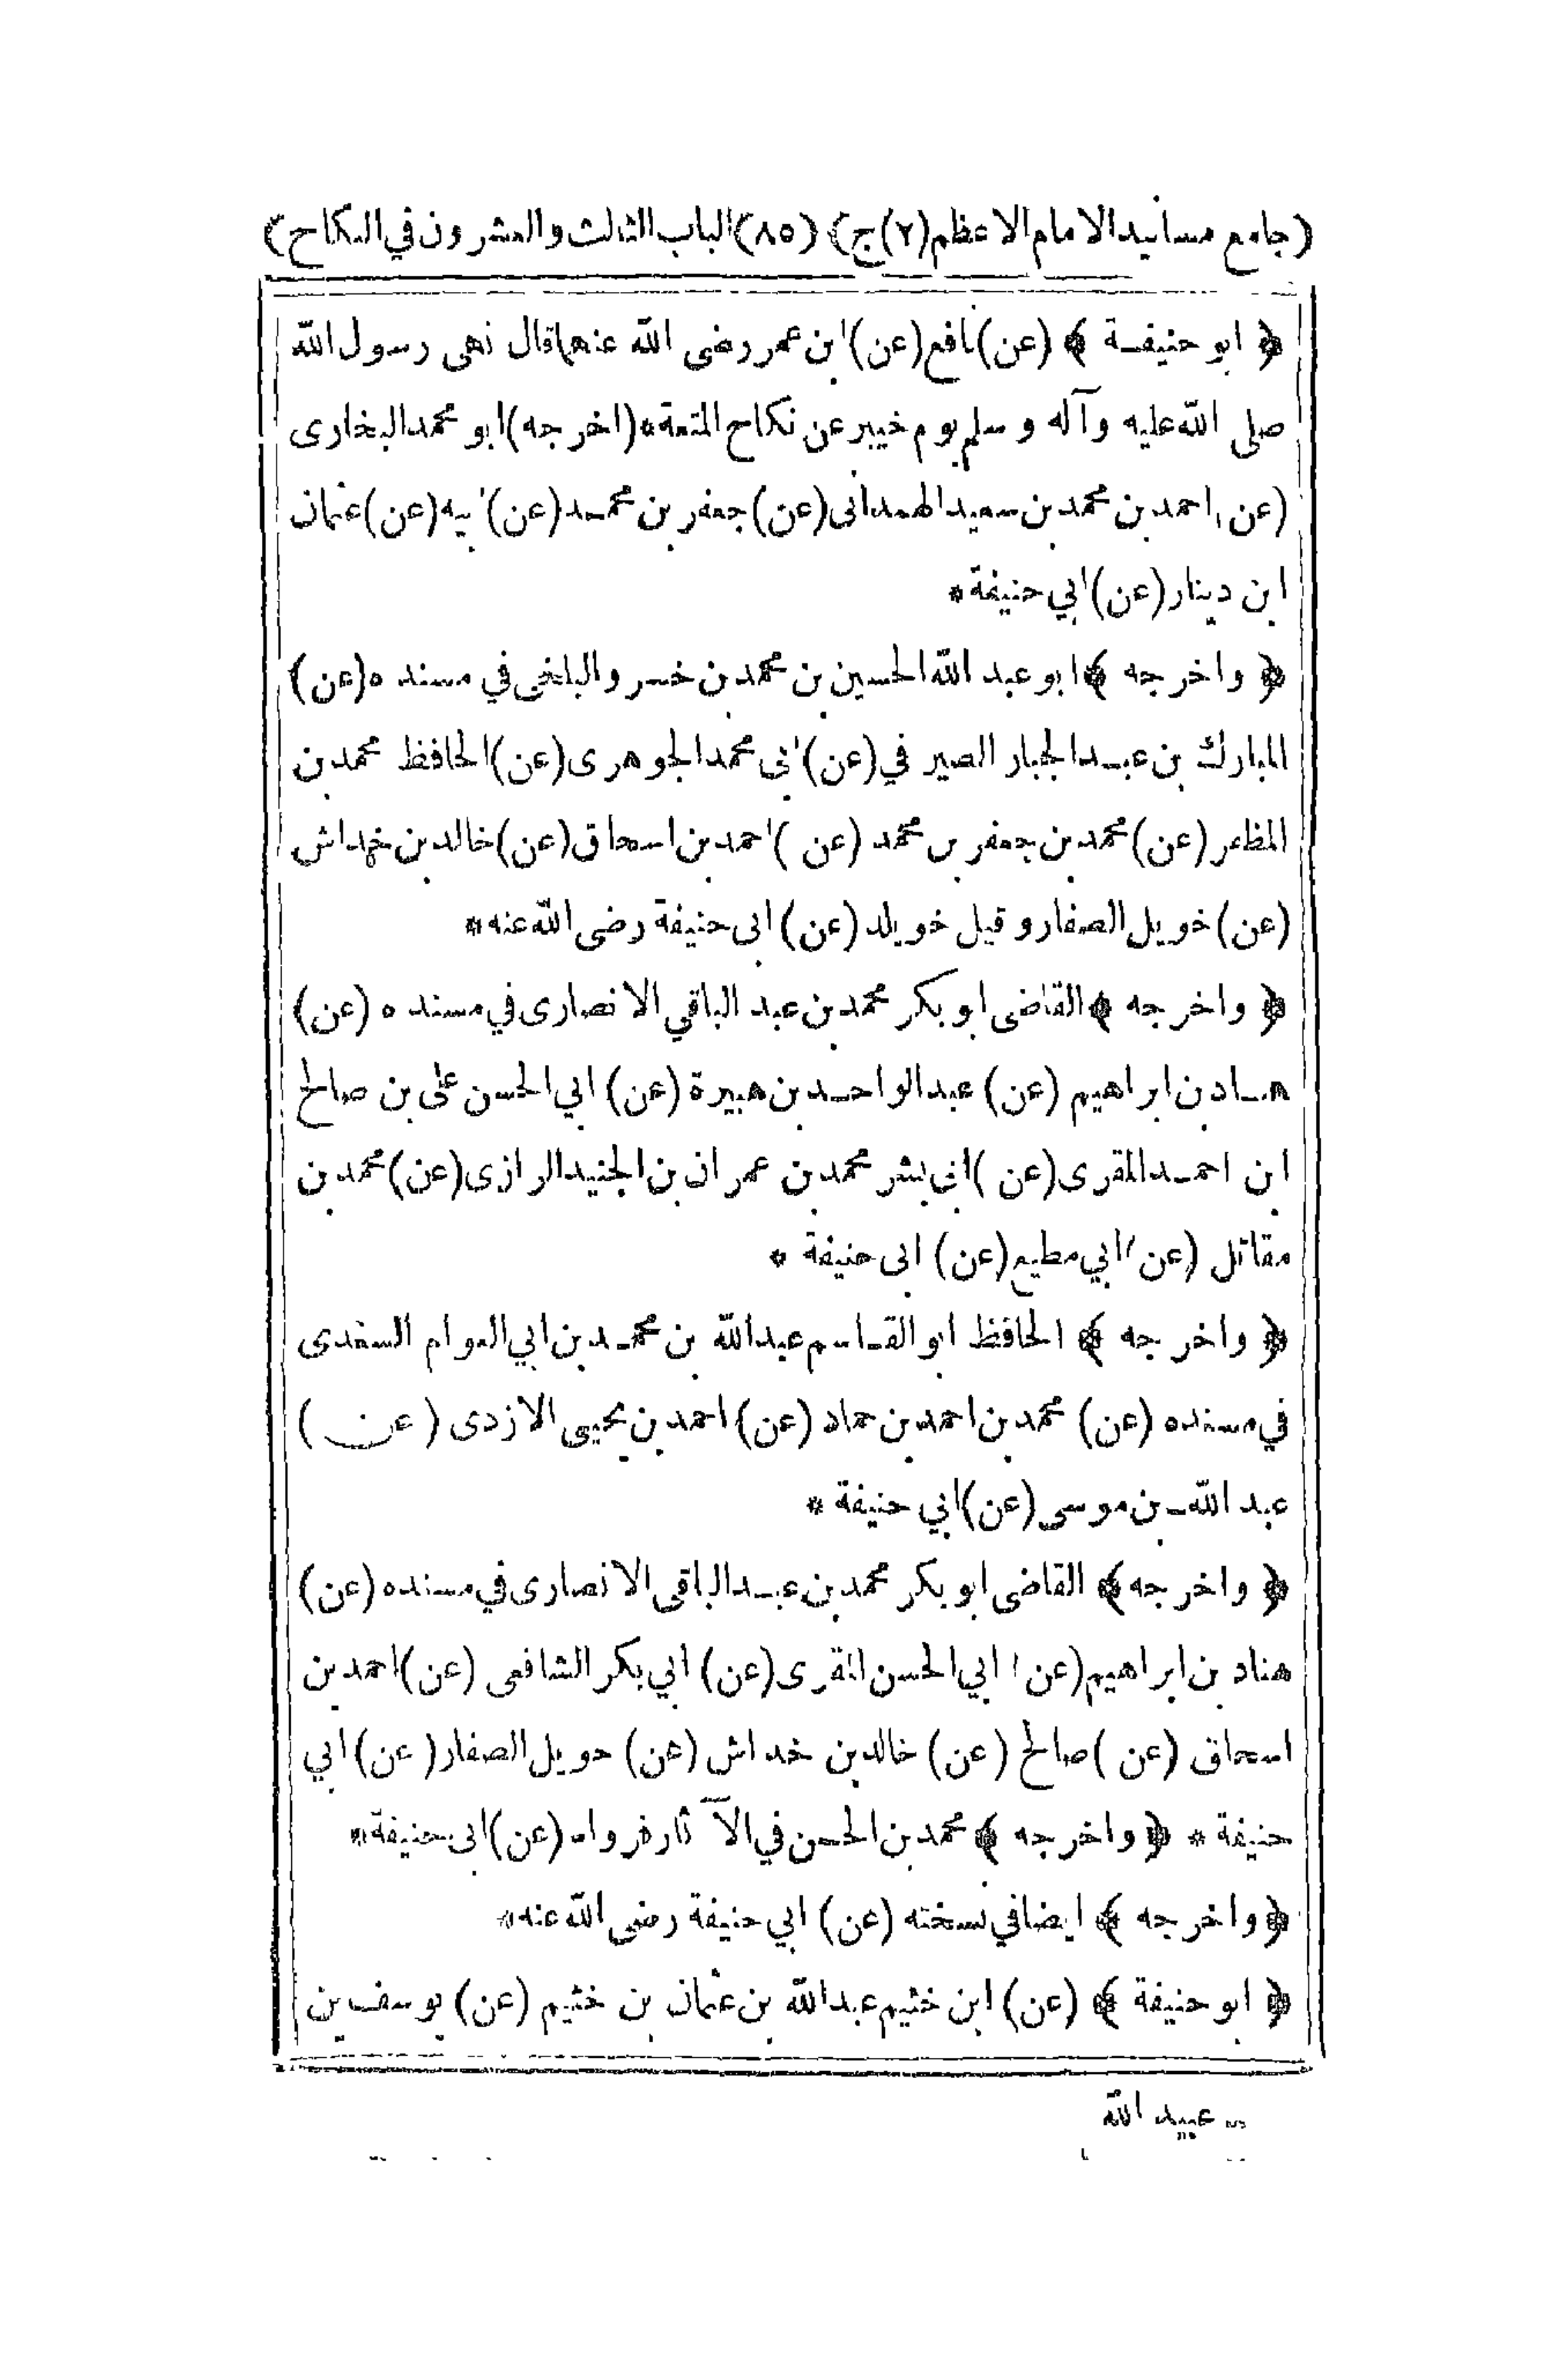 (جامع مسانيد الامام الاعظم (٢) ج) (٨٥) (الباب الثالث والعشرون في النكاح)
﴿ ابو حنيفة ﴾ (عن) نافع (عن) ابن عمر رضى الله عنهما قال نهى رسول الله
صلى الله عليه وآله وسلم يوم خيبر عن نكاح المتعة * (اخرجه) ابو محمد البخارى
(عن) احمد بن محمد بن سعيد الهمدانى (عن) جعفر بن محمد (عن) ابيه (عن) عثمان
ابن دينار (عن) ابي حنيفة *
﴿ واخرجه ﴾ ابو عبد الله الحسين بن محمد بن خسرو البلخى في مسنده (عن)
المبارك بن عبد الجبار الصيرفي (عن) ابى محمد الجوهرى (عن) الحافظ محمد بن
المظفر (عن) محمد بن جعفر بن محمد (عن) احمد بن اسحاق (عن) خالد بن خداش
(عن) خويل الصفار و قيل خويلد (عن) ابى حنيفة رضى الله عنه *
﴿ واخرجه ﴾ القاضى ابو بكر محمد بن عبد الباقي الانصارى في مسنده (عن)
هناد بن ابراهيم (عن) عبد الواحد بن هبيرة (عن) ابي الحسن على بن صالح
ابن احمد المقرى (عن) ابى بشر محمد بن عمران بن الجنيد الرازى (عن) محمد بن
مقاتل (عن) ابي مطيع (عن) ابى حنيفة *
﴿ واخرجه ﴾ الحافظ ابو القاسم عبد الله بن محمد بن ابي العوام السغدى
في مسنده (عن) محمد بن احمد بن حماد (عن) احمد بن يحيى الازدى (عن)
عبد الله بن موسى (عن) ابي حنيفة *
﴿ واخرجه ﴾ القاضى ابو بكر محمد بن عبد الباقى الانصارى في مسنده (عن)
هناد بن ابراهيم (عن) ابي الحسن المقرى (عن) ابي بكر الشافعى (عن) احمد بن
اسحاق (عن) صالح (عن) خالد بن خداش (عن) خويل الصفار (عن) ابي
حنيفة * ﴿ واخرجه ﴾ محمد بن الحسن في الآثار فرواه (عن) ابى حنيفة *
﴿ واخرجه ﴾ ايضا في نسخته (عن) ابي حنيفة رضى الله عنه *
﴿ ابو حنيفة ﴾ (عن) ابن خثيم عبد الله بن عثمان بن خثيم (عن) يوسف بن
عبيد الله